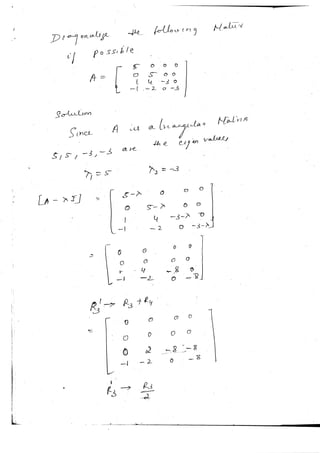 Diagonalize the following Matrix
if possible
A = [ 5 0 0 0
0 5 0 0
1 4 -3 0
-1 -2 0 -3 ]
Solution
Since A is a triangular Matrix
5, 5, -3, -3 are the eigen values
λ₁ = 5 λ₂ = -3
[A - λI] = [ 5-λ 0 0 0
0 5-λ 0 0
1 4 -3-λ 0
-1 -2 0 -3-λ ]
= [ 0 0 0 0
0 0 0 0
1 4 -8 0
-1 -2 0 -8 ]
R₃' → R₃ + R₄
= [ 0 0 0 0
0 0 0 0
0 2 -8 -8
-1 -2 0 -8 ]
R₃' → R₃/2